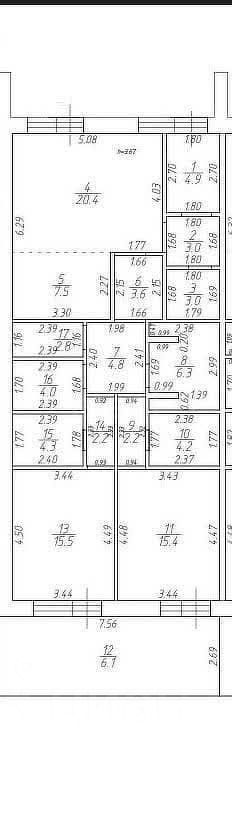 5.08
h=3.67
1.80
1
4.9
2.70
2.70
4
20.4
4.03
1.80
1.80
2
3.0
1.68
1.68
6.29
1.77
1.80
5
7.5
2.27
1.66
6
3.6
2.15
2.15
1.80
3
3.0
1.68
1.69
3.30
1.66
1.79
2.39
17
2.8
1.16
1.16
2.39
1.98
7
4.8
2.40
2.41
1.99
2.38
0.99
0.20
0.99
8
6.3
1.69
2.99
0.99
1.39
0.62
2.39
16
4.0
1.70
1.68
2.39
2.39
15
4.3
1.77
1.78
2.40
0.92
14
2.2
0.93
0.94
9
2.2
0.94
2.38
10
4.2
1.77
1.77
2.37
3.44
3.43
13
15.5
4.50
4.49
11
15.4
4.48
4.47
3.44
3.44
7.56
12
6.1
2.69